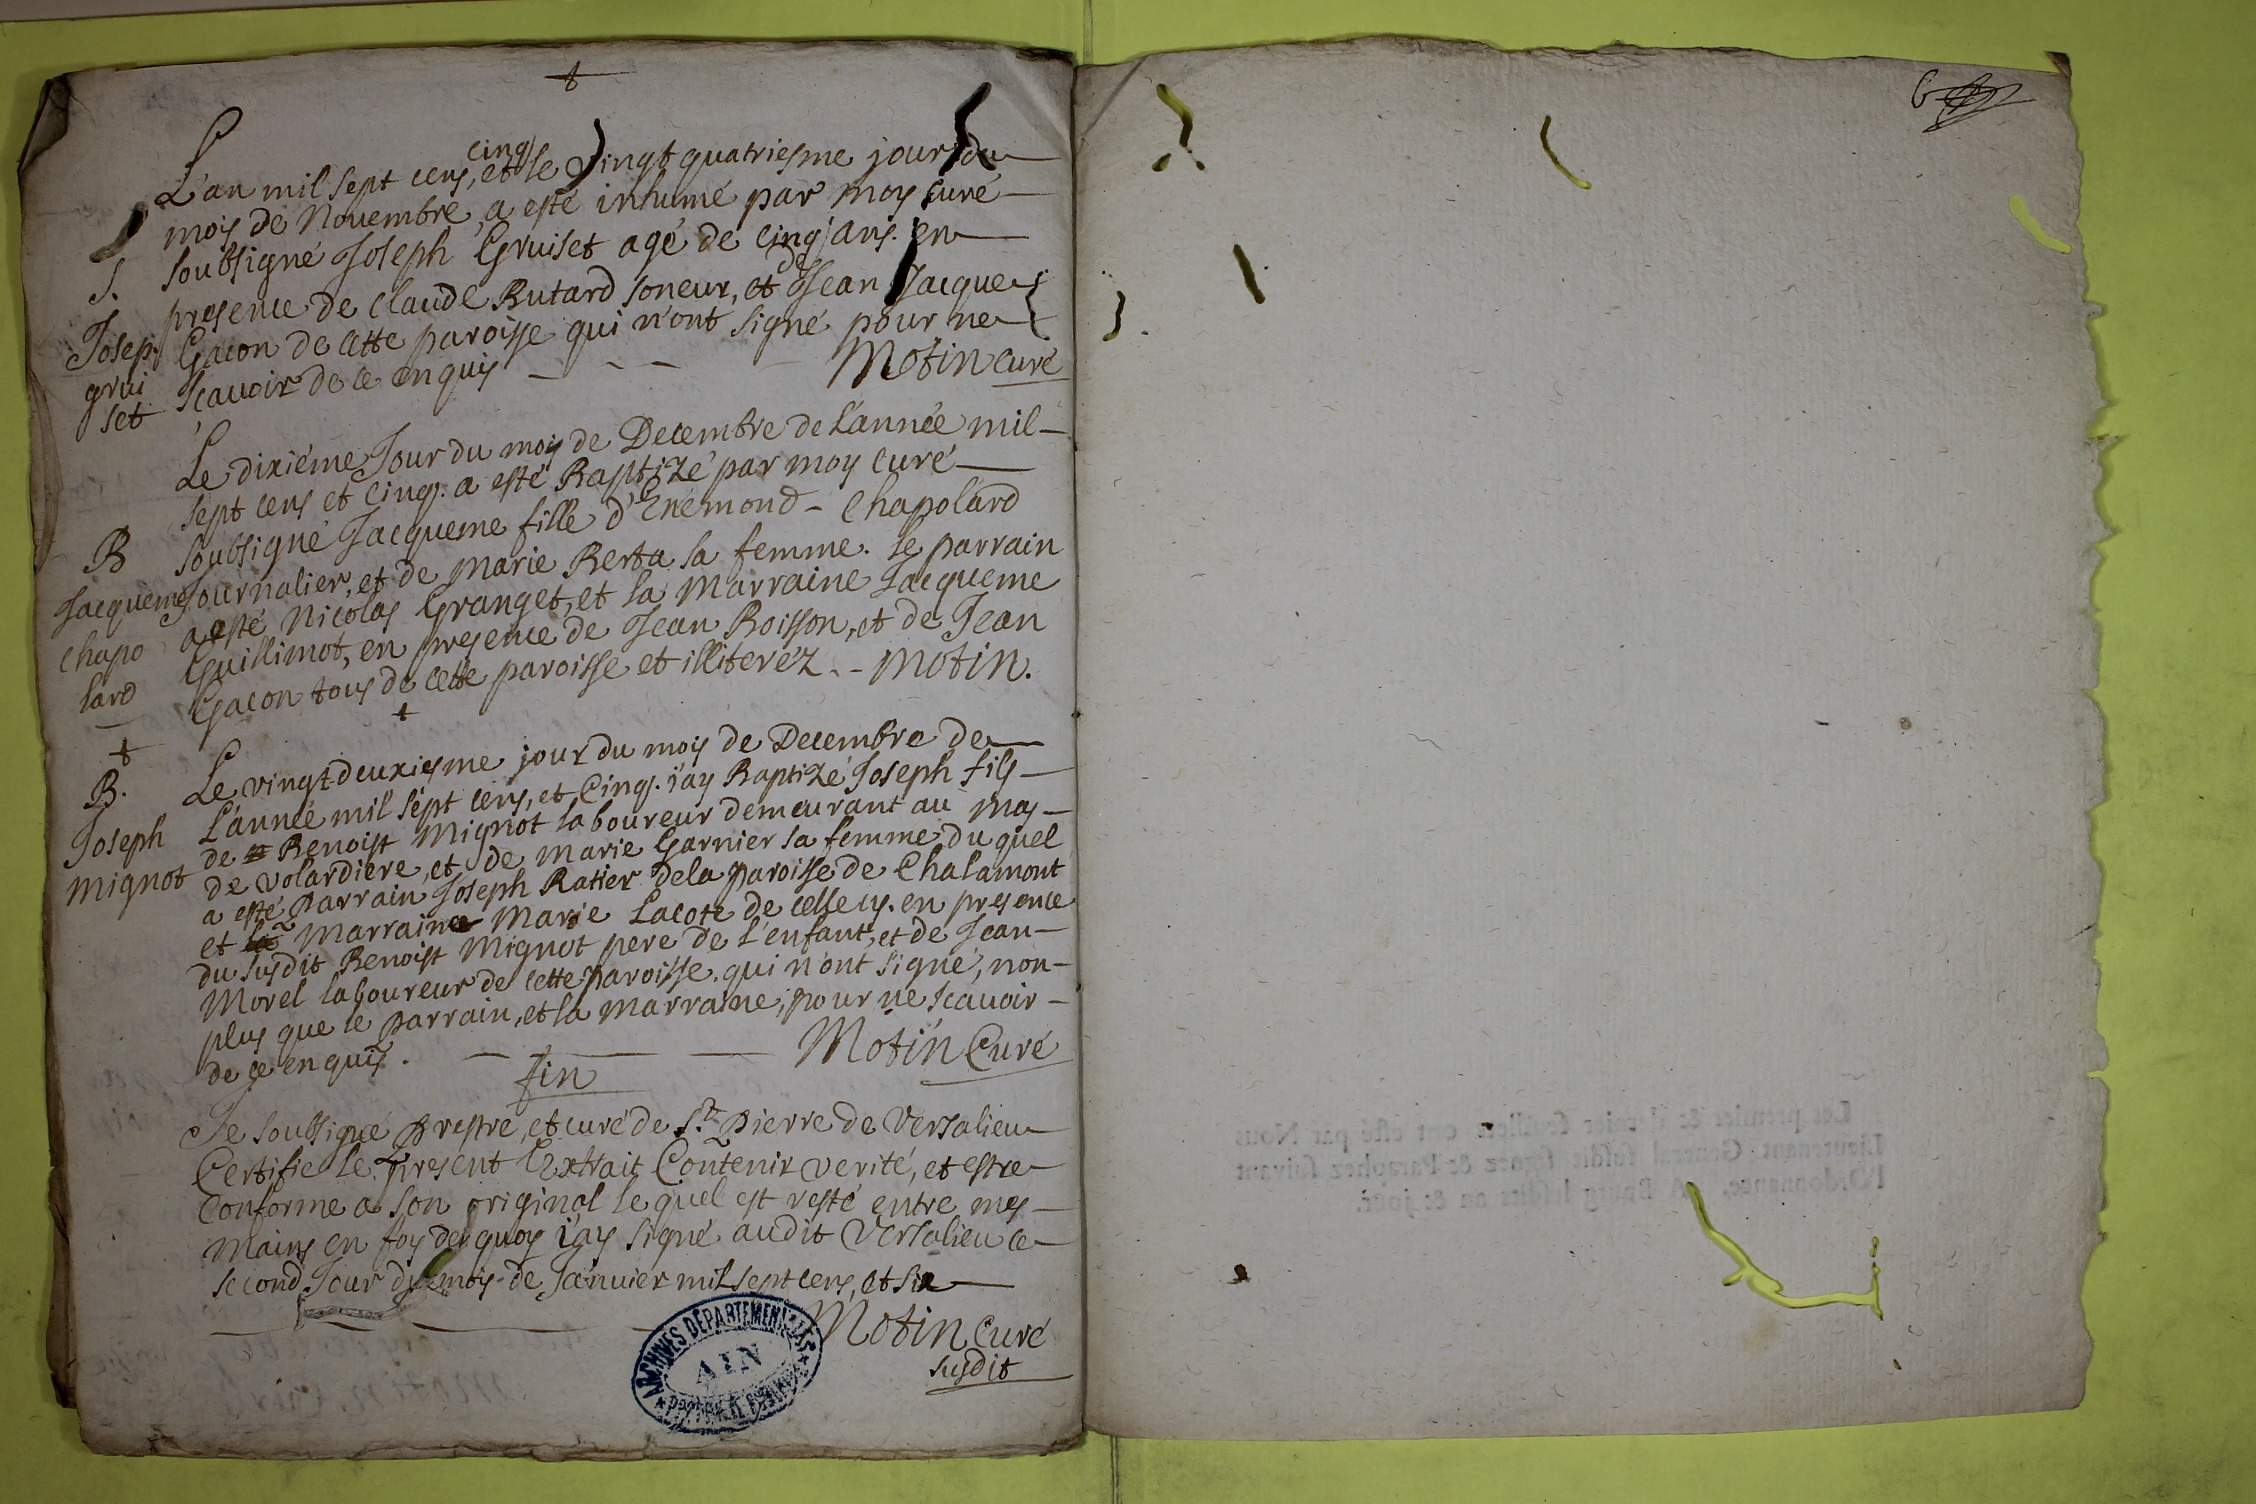 L'an mil sept cens, cinq et le vingt quatriesme jour du
mois de Novembre, a esté inhumé par moy curé
S. soubsigné Joseph Gruiset agé de cinq ans. en
presence de Claude Butard soneur, et de Jean Jacque
Josep. Gacon de cette paroisse qui n'ont signé pour ne
grui scavoir de ce enquis
set
Motin curé
Le dixiéme Jour du mois de Decembre de L'année mil
sept cens et cinq. a esté Baptizé par moy curé
B soubsigné Jacqueme fille d'Enemond Chapolard
Jacqueme Journalier, et de Marie Berta sa femme. le parrain
chapo a esté Nicolas Granget, et la Marraine Jacqueme
lard Guillimot, en presence de Jean Boisson, et de Jean
Gacon tous de cette paroisse et illiteréz -- Motin.
B. Le vingt deuxiesme jour du mois de Decembre de
Joseph L'année mil sept cens, et Cinq. j'ay Baptizé Joseph fils
Mignot de Benoist Mignot laboureur demeurant au mas
de volardiere, et de Marie Garnier sa femme, du quel
a esté parrain Joseph Ratier de la paroisse de Chalamont
et Marraine Marie Lacote de celle cy. en presence
du susdit Benoist Mignot pere de l'enfant, et de Jean
Morel laboureur de cette paroisse. qui n'ont signé, non
plus que le parrain, et la marraine, pour ne scavoir
de ce enquis.
Motin Curé
fin
Je soubsigné prestre, et curé de St. Pierre de Versalieu
Certifie le present Extrait Contenir verité, et estre
Conforme a son original le quel est resté entre mes
mains en foy de quoy j'ay signé audit Versalieu ce
second Jour du mois de Janvier mil sept cens, et six
Motin Curé
susdit
ARCHIVES DÉPARTEMENTALES
AIN
6
Les premier & dernier feuillets ont esté par Nous
Lieutenant General susdit signez & Paraphez suivant
l'Ordonnance. A Bourg lesdits an & jour.